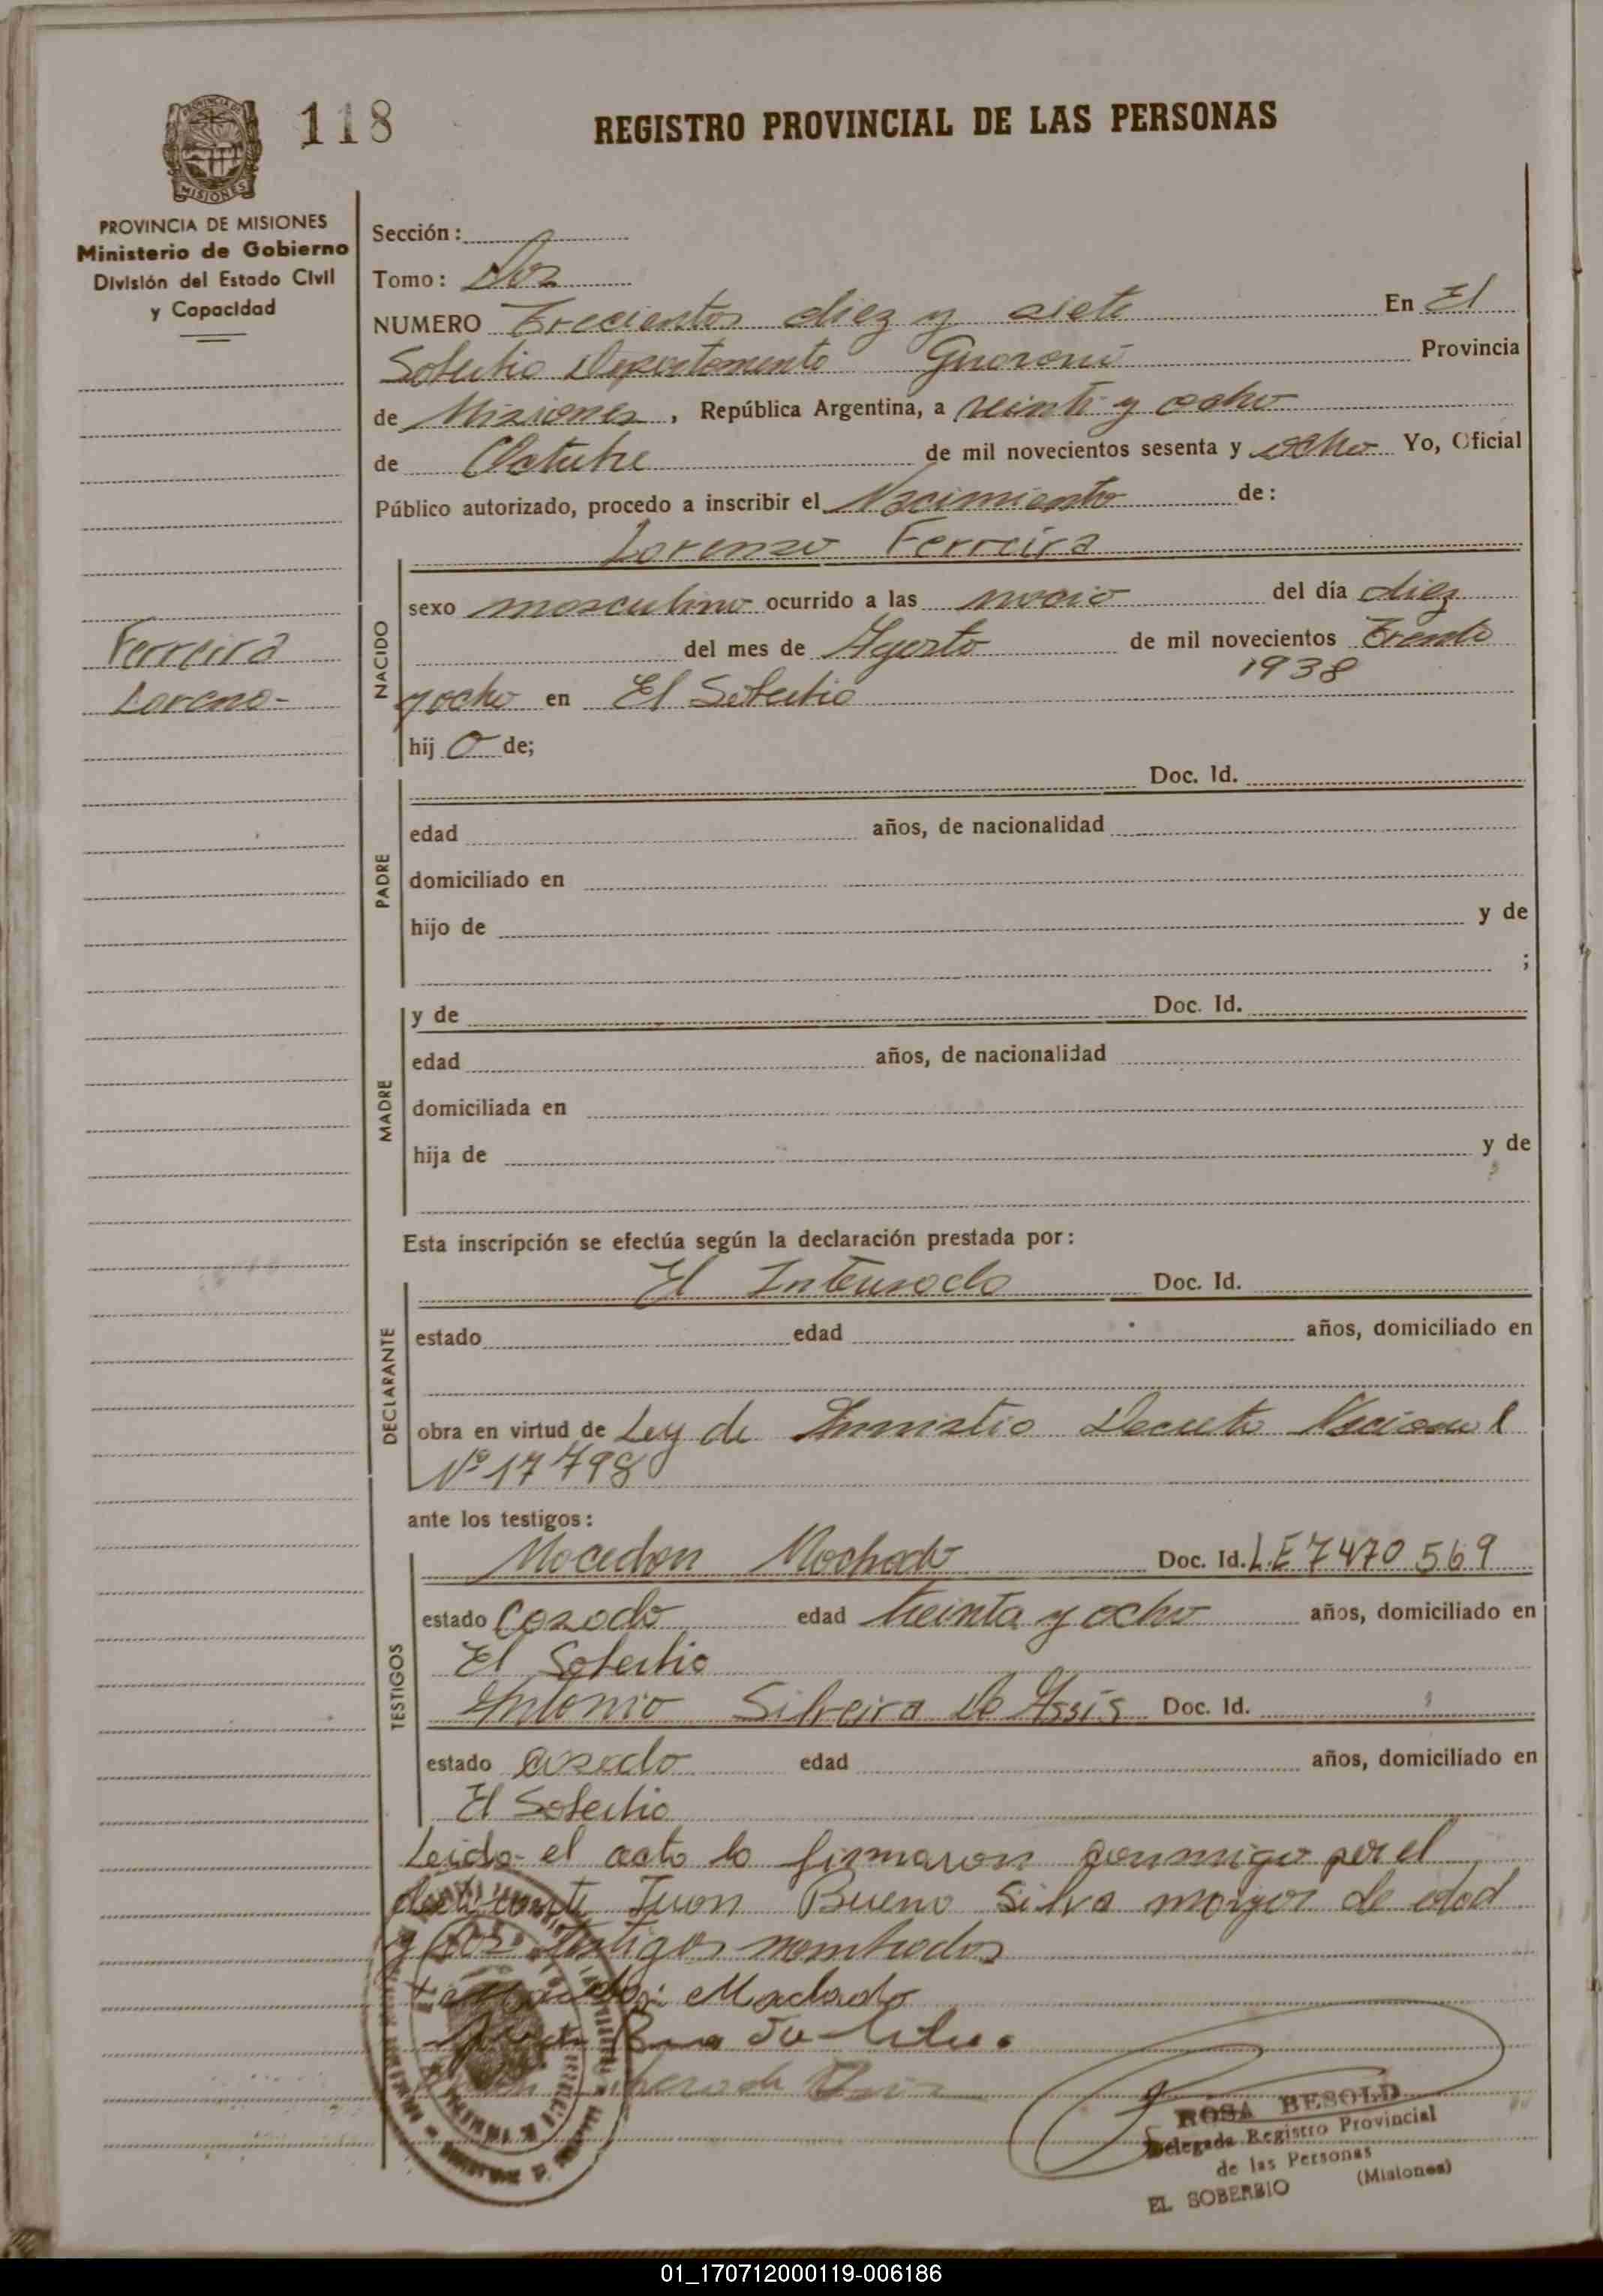 118
REGISTRO PROVINCIAL DE LAS PERSONAS
PROVINCIA DE MISIONES
Ministerio de Gobierno
División del Estado Civil
y Capacidad
Sección:
Tomo: Dos
NUMERO Trecientos diez y siete En El
Soberbio Departamento Guarani Provincia
de Misiones, República Argentina, a veinti y ocho
de Octubre de mil novecientos sesenta y ocho Yo, Oficial
Público autorizado, procedo a inscribir el Nacimiento de:
Lorenzo Ferreira
NACIDO
sexo masculino ocurrido a las del día diez
del mes de Agosto de mil novecientos Trenta
1938
y ocho en El Soberbio
hijo de;
Ferreira
Lorenzo-
PADRE
Doc. Id.
edad años, de nacionalidad
domiciliado en
hijo de y de
;
MADRE
y de Doc. Id.
edad años, de nacionalidad
domiciliada en
hija de y de
Esta inscripción se efectúa según la declaración prestada por:
DECLARANTE
El Doc. Id.
estado edad años, domiciliado en
obra en virtud de Ley de Amnistia Decreto Nacional
Nº 17798
ante los testigos:
TESTIGOS
Mocedon Machado Doc. Id. L.E 7470569
estado Casado edad treinta y ocho años, domiciliado en
El Soberbio
Antonio Silveira De Assis Doc. Id.
estado casado edad años, domiciliado en
El Soberbio
Leida el acta la firmaron conmigo por el
declarante Juan Bueno Silva mayor de edad
y los testigos nombrados
Machado
ROSA BESOLD
Delegada Registro Provincial
de las Personas
EL SOBERBIO (Misiones)
01_170712000119-006186